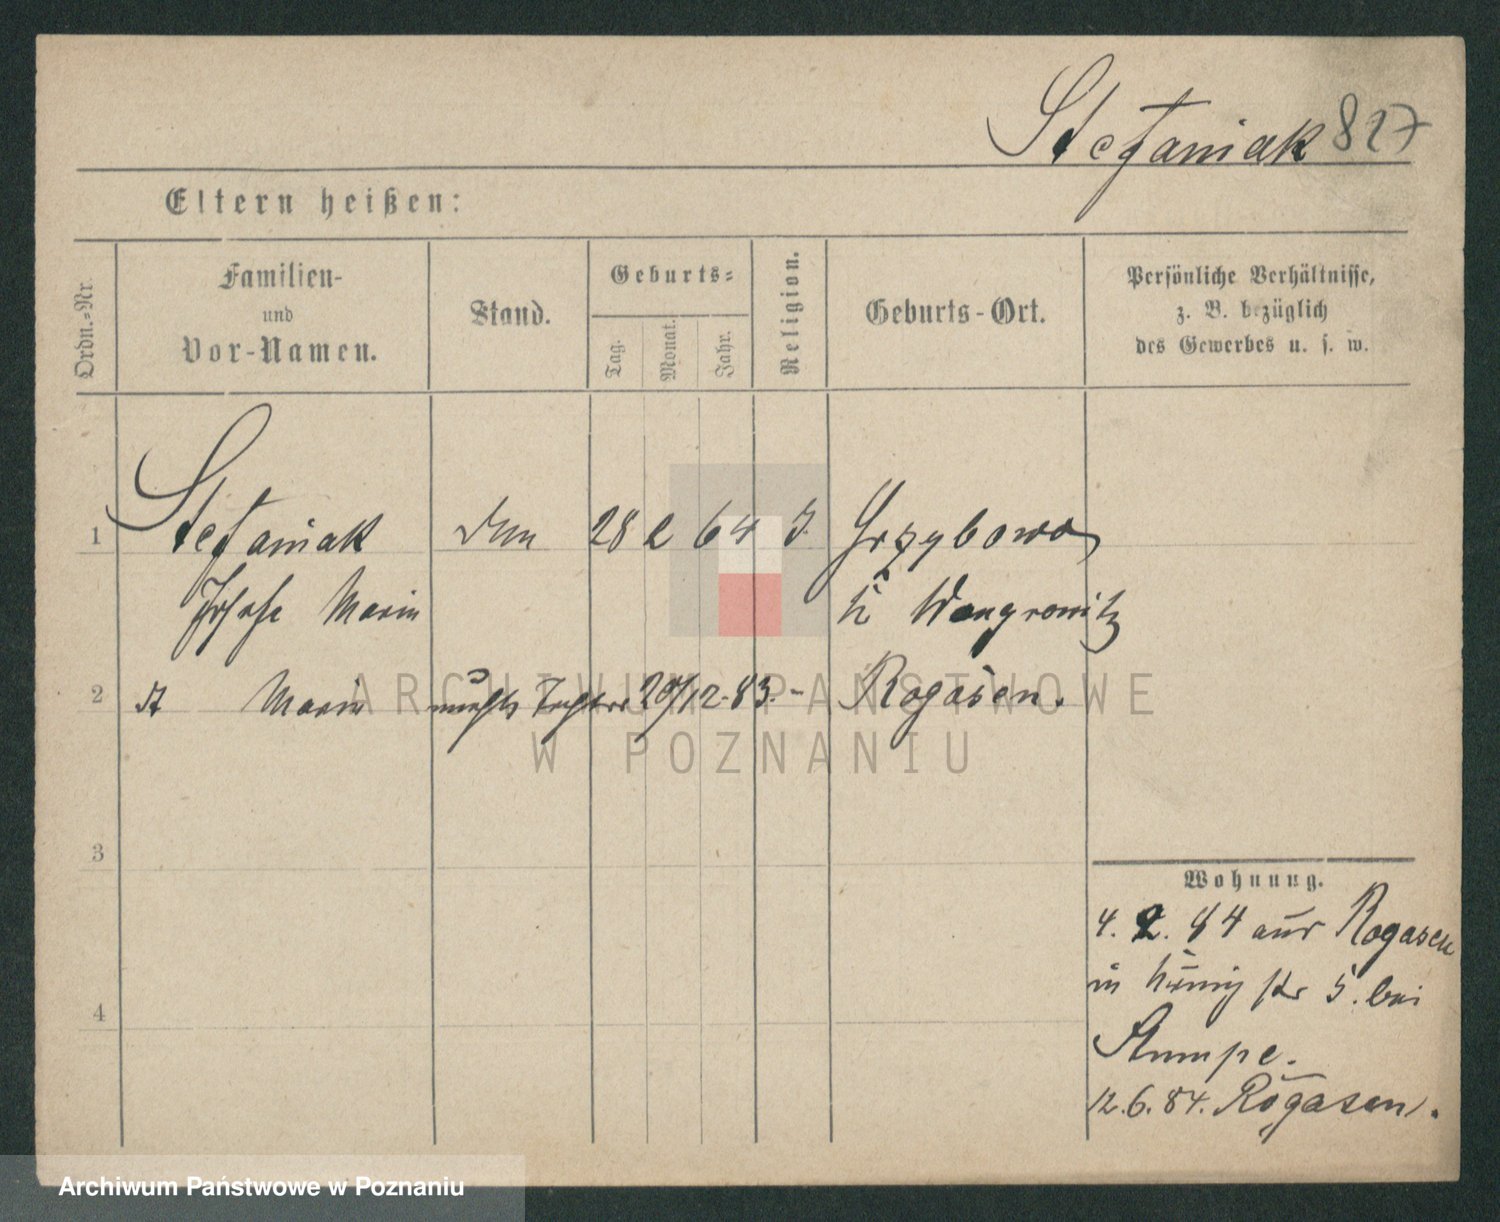 Stefaniak 827
Eltern heißen:
Ordn.=Nr.
Familien-
und
Vor-Namen.
Stand.
Geburts=
Tag.
Monat.
Jahr.
Religion.
Geburts-Ort.
Persönliche Verhältnisse,
z. B. bezüglich
des Gewerbes u. s. w.
1 Stefaniak 28 2 64 Grzybowo
Marie Wongrowitz
2 Marie 20/12.83.- Rogasen.
3
4
Wohnung.
4. 2. 84 aus Rogasen
in König str 5. bei
Stumpe.
12.6.84. Rogasen.
ARCHIWUM PAŃSTWOWE
W POZNANIU
Archiwum Państwowe w Poznaniu